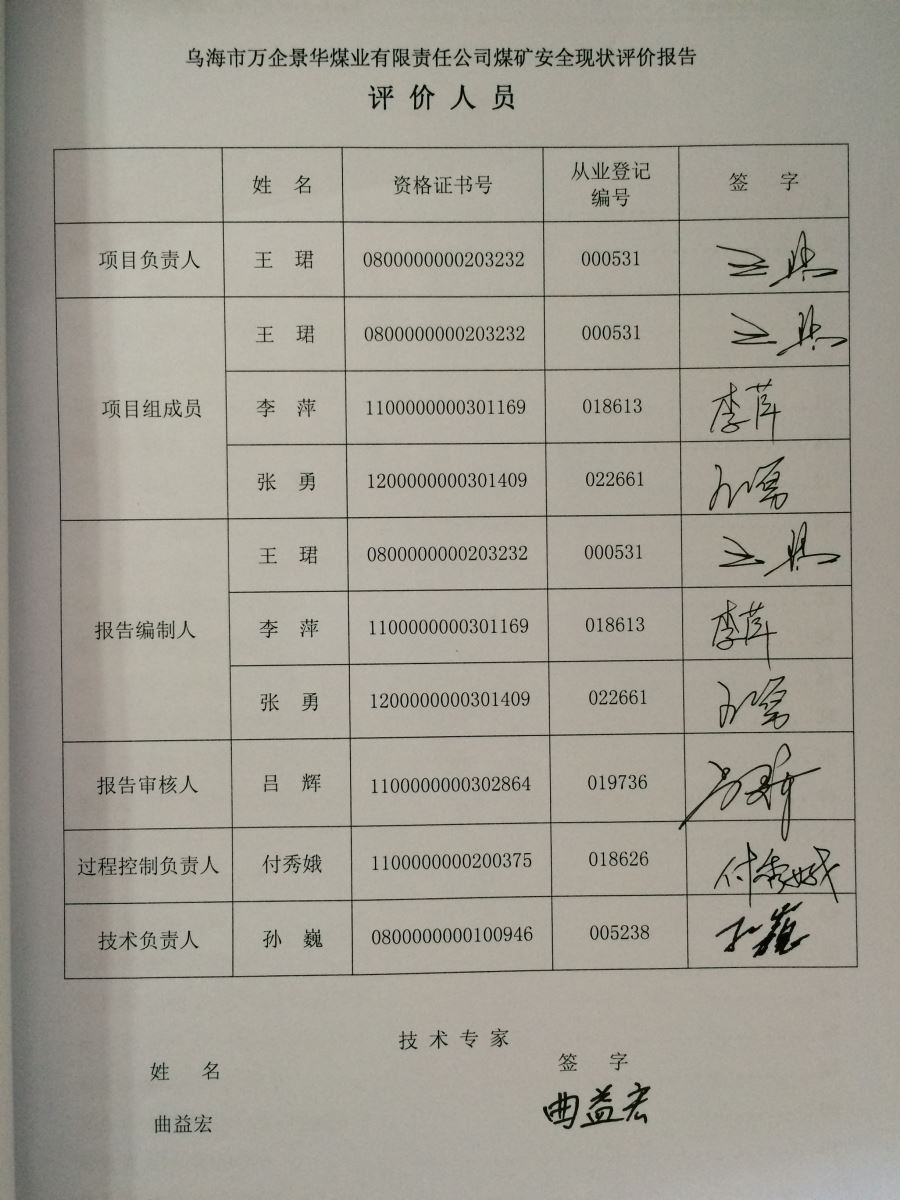 乌海市万企景华煤业有限责任公司煤矿安全现状评价报告
评价人员
姓 名 资格证书号 从业登记编号 签 字
项目负责人 王 珺 0800000000203232 000531 王珺
项目组成员 王 珺 0800000000203232 000531 王珺
李 萍 1100000000301169 018613 李萍
张 勇 1200000000301409 022661 张勇
报告编制人 王 珺 0800000000203232 000531 王珺
李 萍 1100000000301169 018613 李萍
张 勇 1200000000301409 022661 张勇
报告审核人 吕 辉 1100000000302864 019736 吕辉
过程控制负责人 付秀娥 1100000000200375 018626 付秀娥
技术负责人 孙 巍 0800000000100946 005238 孙巍
技术专家
姓 名 签 字
曲益宏 曲益宏